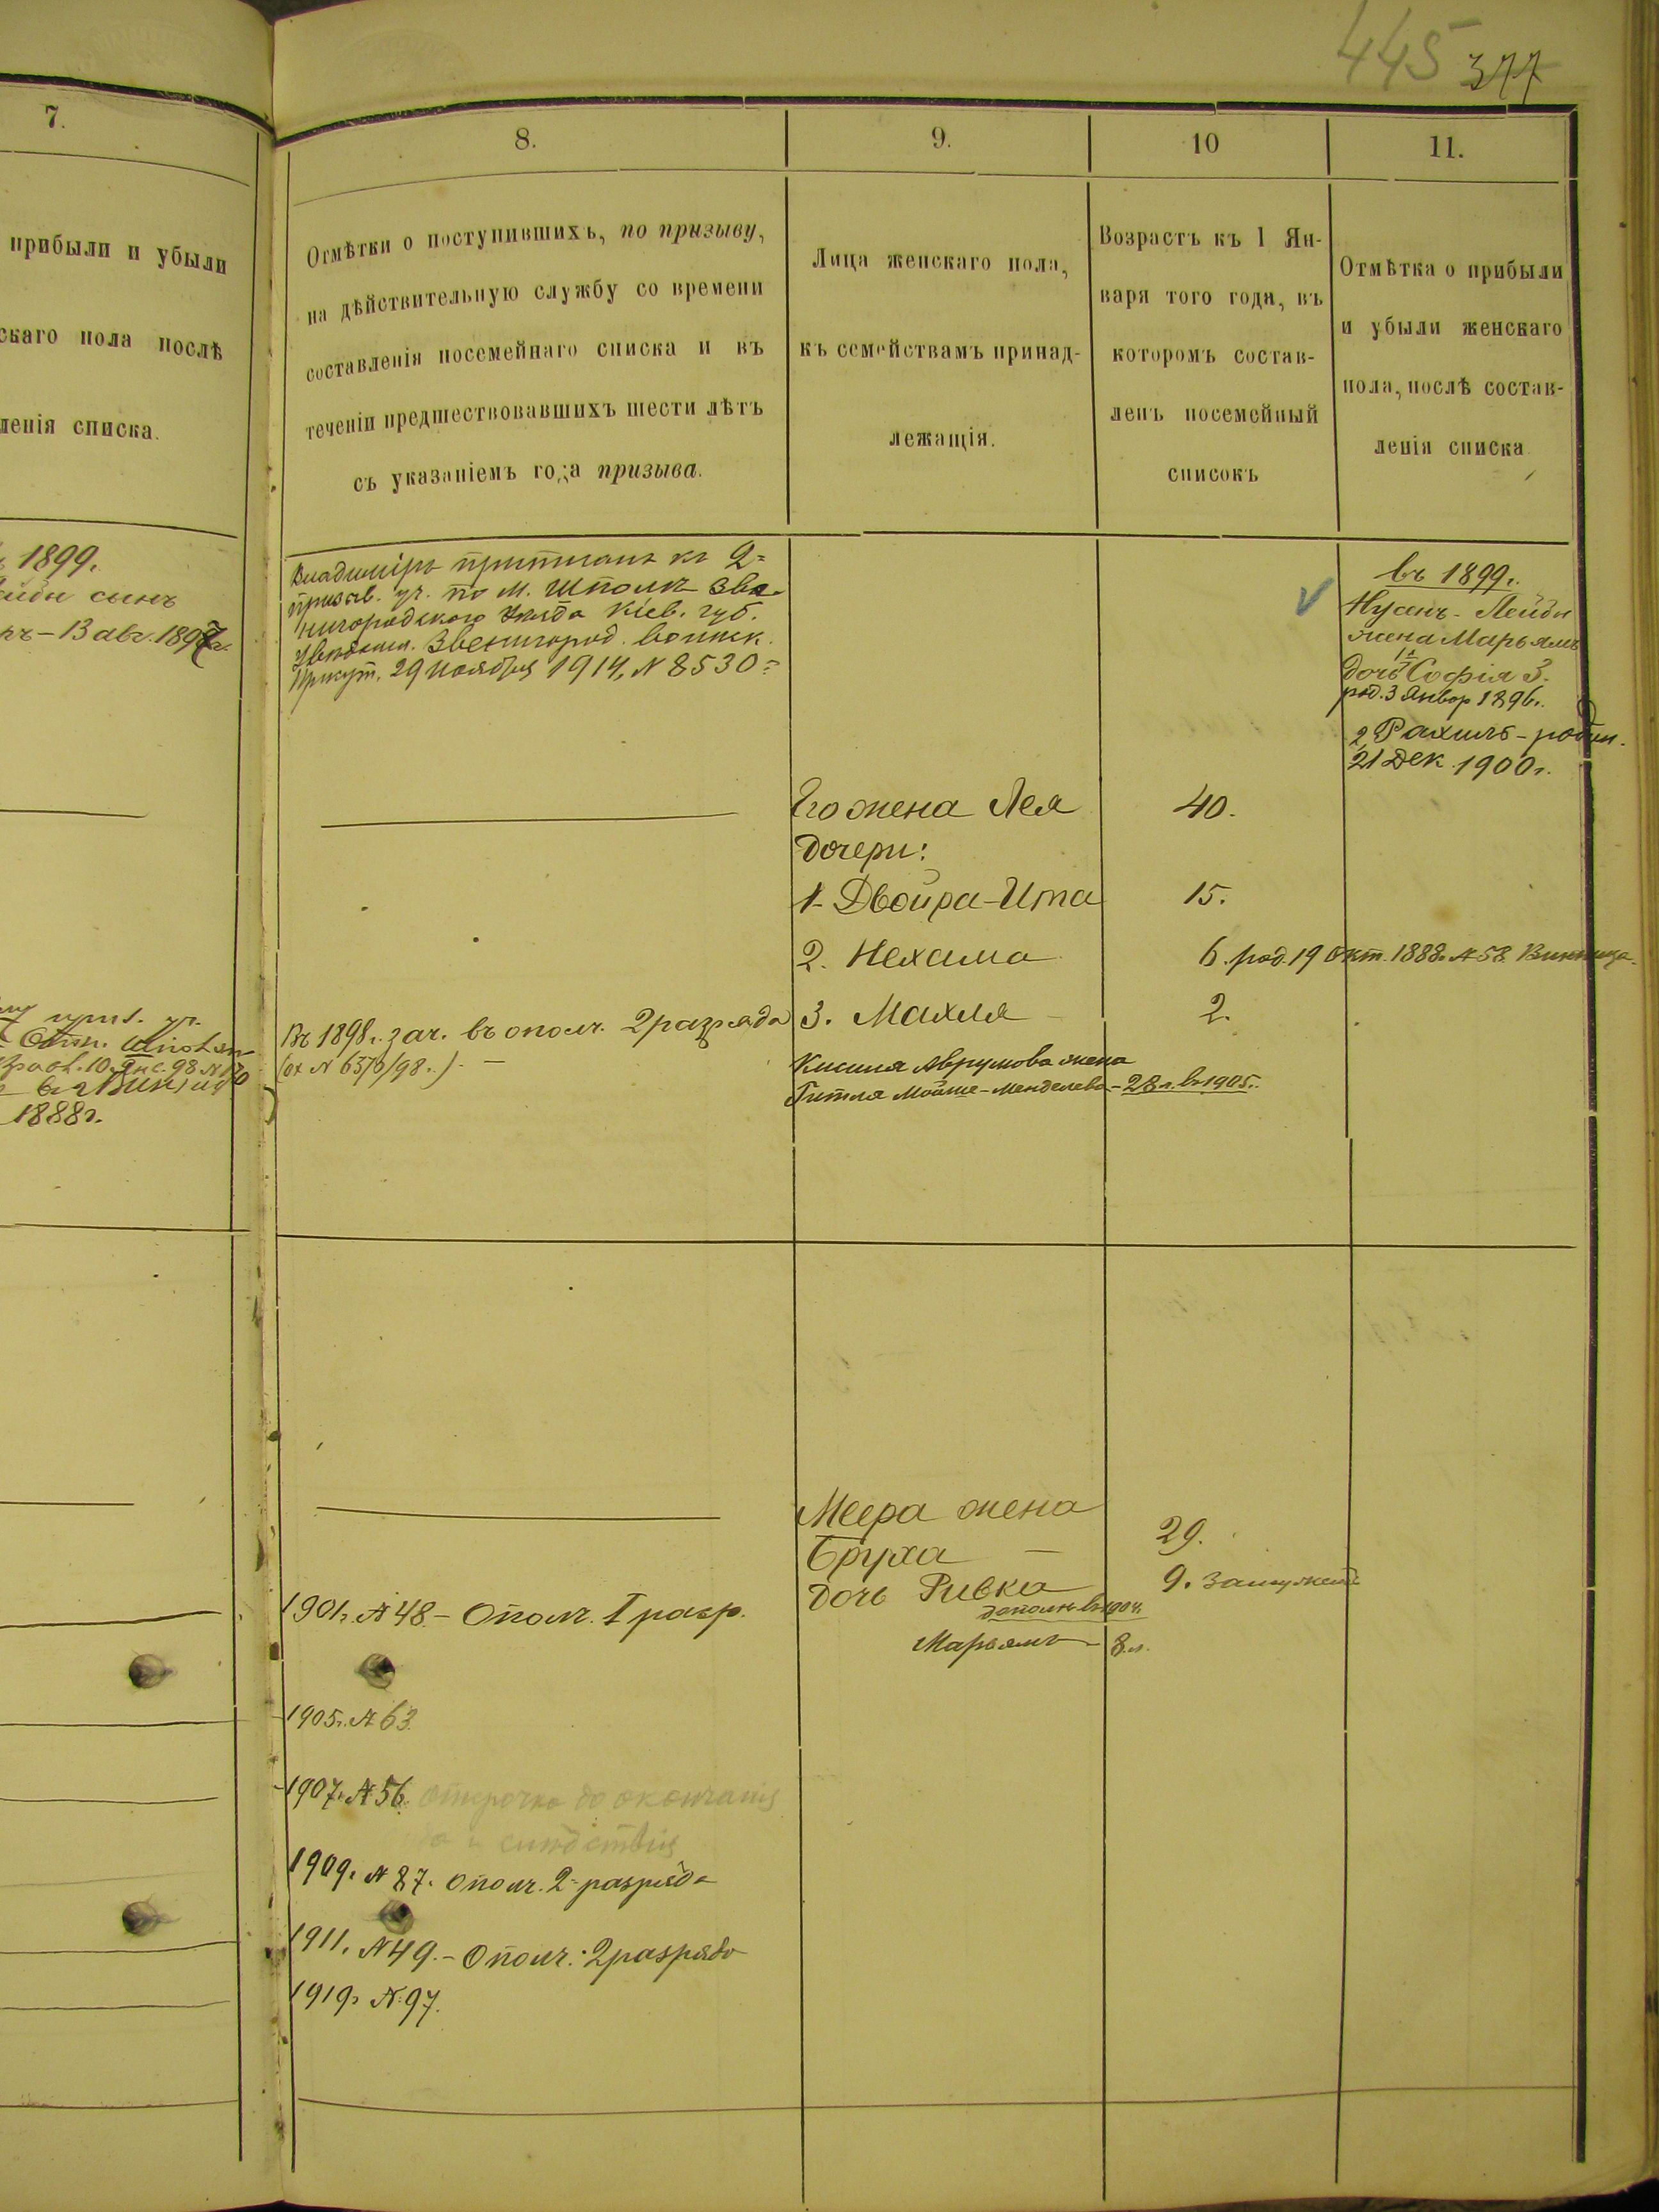 445 377
7.
8.
9.
10
11.
прибыли и убыли
скаго пола послѣ
ленія списка.
Отмѣтки о поступившихъ, по призыву,
на дѣйствительную службу со времени
составленія посемейнаго списка и въ
теченіи предшествовавшихъ шести лѣтъ
съ указаніемъ года призыва.
Лица женскаго пола,
къ семействамъ принад-
лежащія.
Возрастъ къ 1 Ян-
варя того года, въ
которомъ состав-
ленъ посемейный
списокъ
Отмѣтка о прибыли
и убыли женскаго
пола, послѣ состав-
ленія списка
1899.
сынъ
13 авг. 1897г.
Владиміръ приписанъ къ 2-
призыв. уч. по м. Шполѣ Зве-
нигородского уѣзда Кіев. губ.
Звенигород. Воинск.
Присут. 29 ноября 1914, № 8530
въ 1899г.
Нусанъ-Лейбы
жена Марьямъ
дочь 1/ Софія 3.
род. 3 Январ 1896г.
2 Рахиль - родил.
21 Дек. 1900г.
Его жена Лея 40.
дочери:
1. Двойра-Ита 15.
2. Нехама 6. род. 19 Окт. 1888г. № 58 Винница.
3. Махля 2.
98
1888г.
Въ 1898г. зач. въ ополч. 2 разряда
Кисиля Аврумова жена
Гитля Мойше-Менделева - 28 л. въ 1905г.
Меера жена
Бруха 29.
дочь Ривка 9. замужемъ
дополн. въ 1904г.
Марьямъ - 8 л.
1901г. № 48 - Ополч. I разр.
1905г. № 63.
1907г. № 56. отсрочка до окончанія
1909г. № 87. ополч. 2 разряда
1911г. № 49. - Ополч. 2 разряда
1919г № 97.